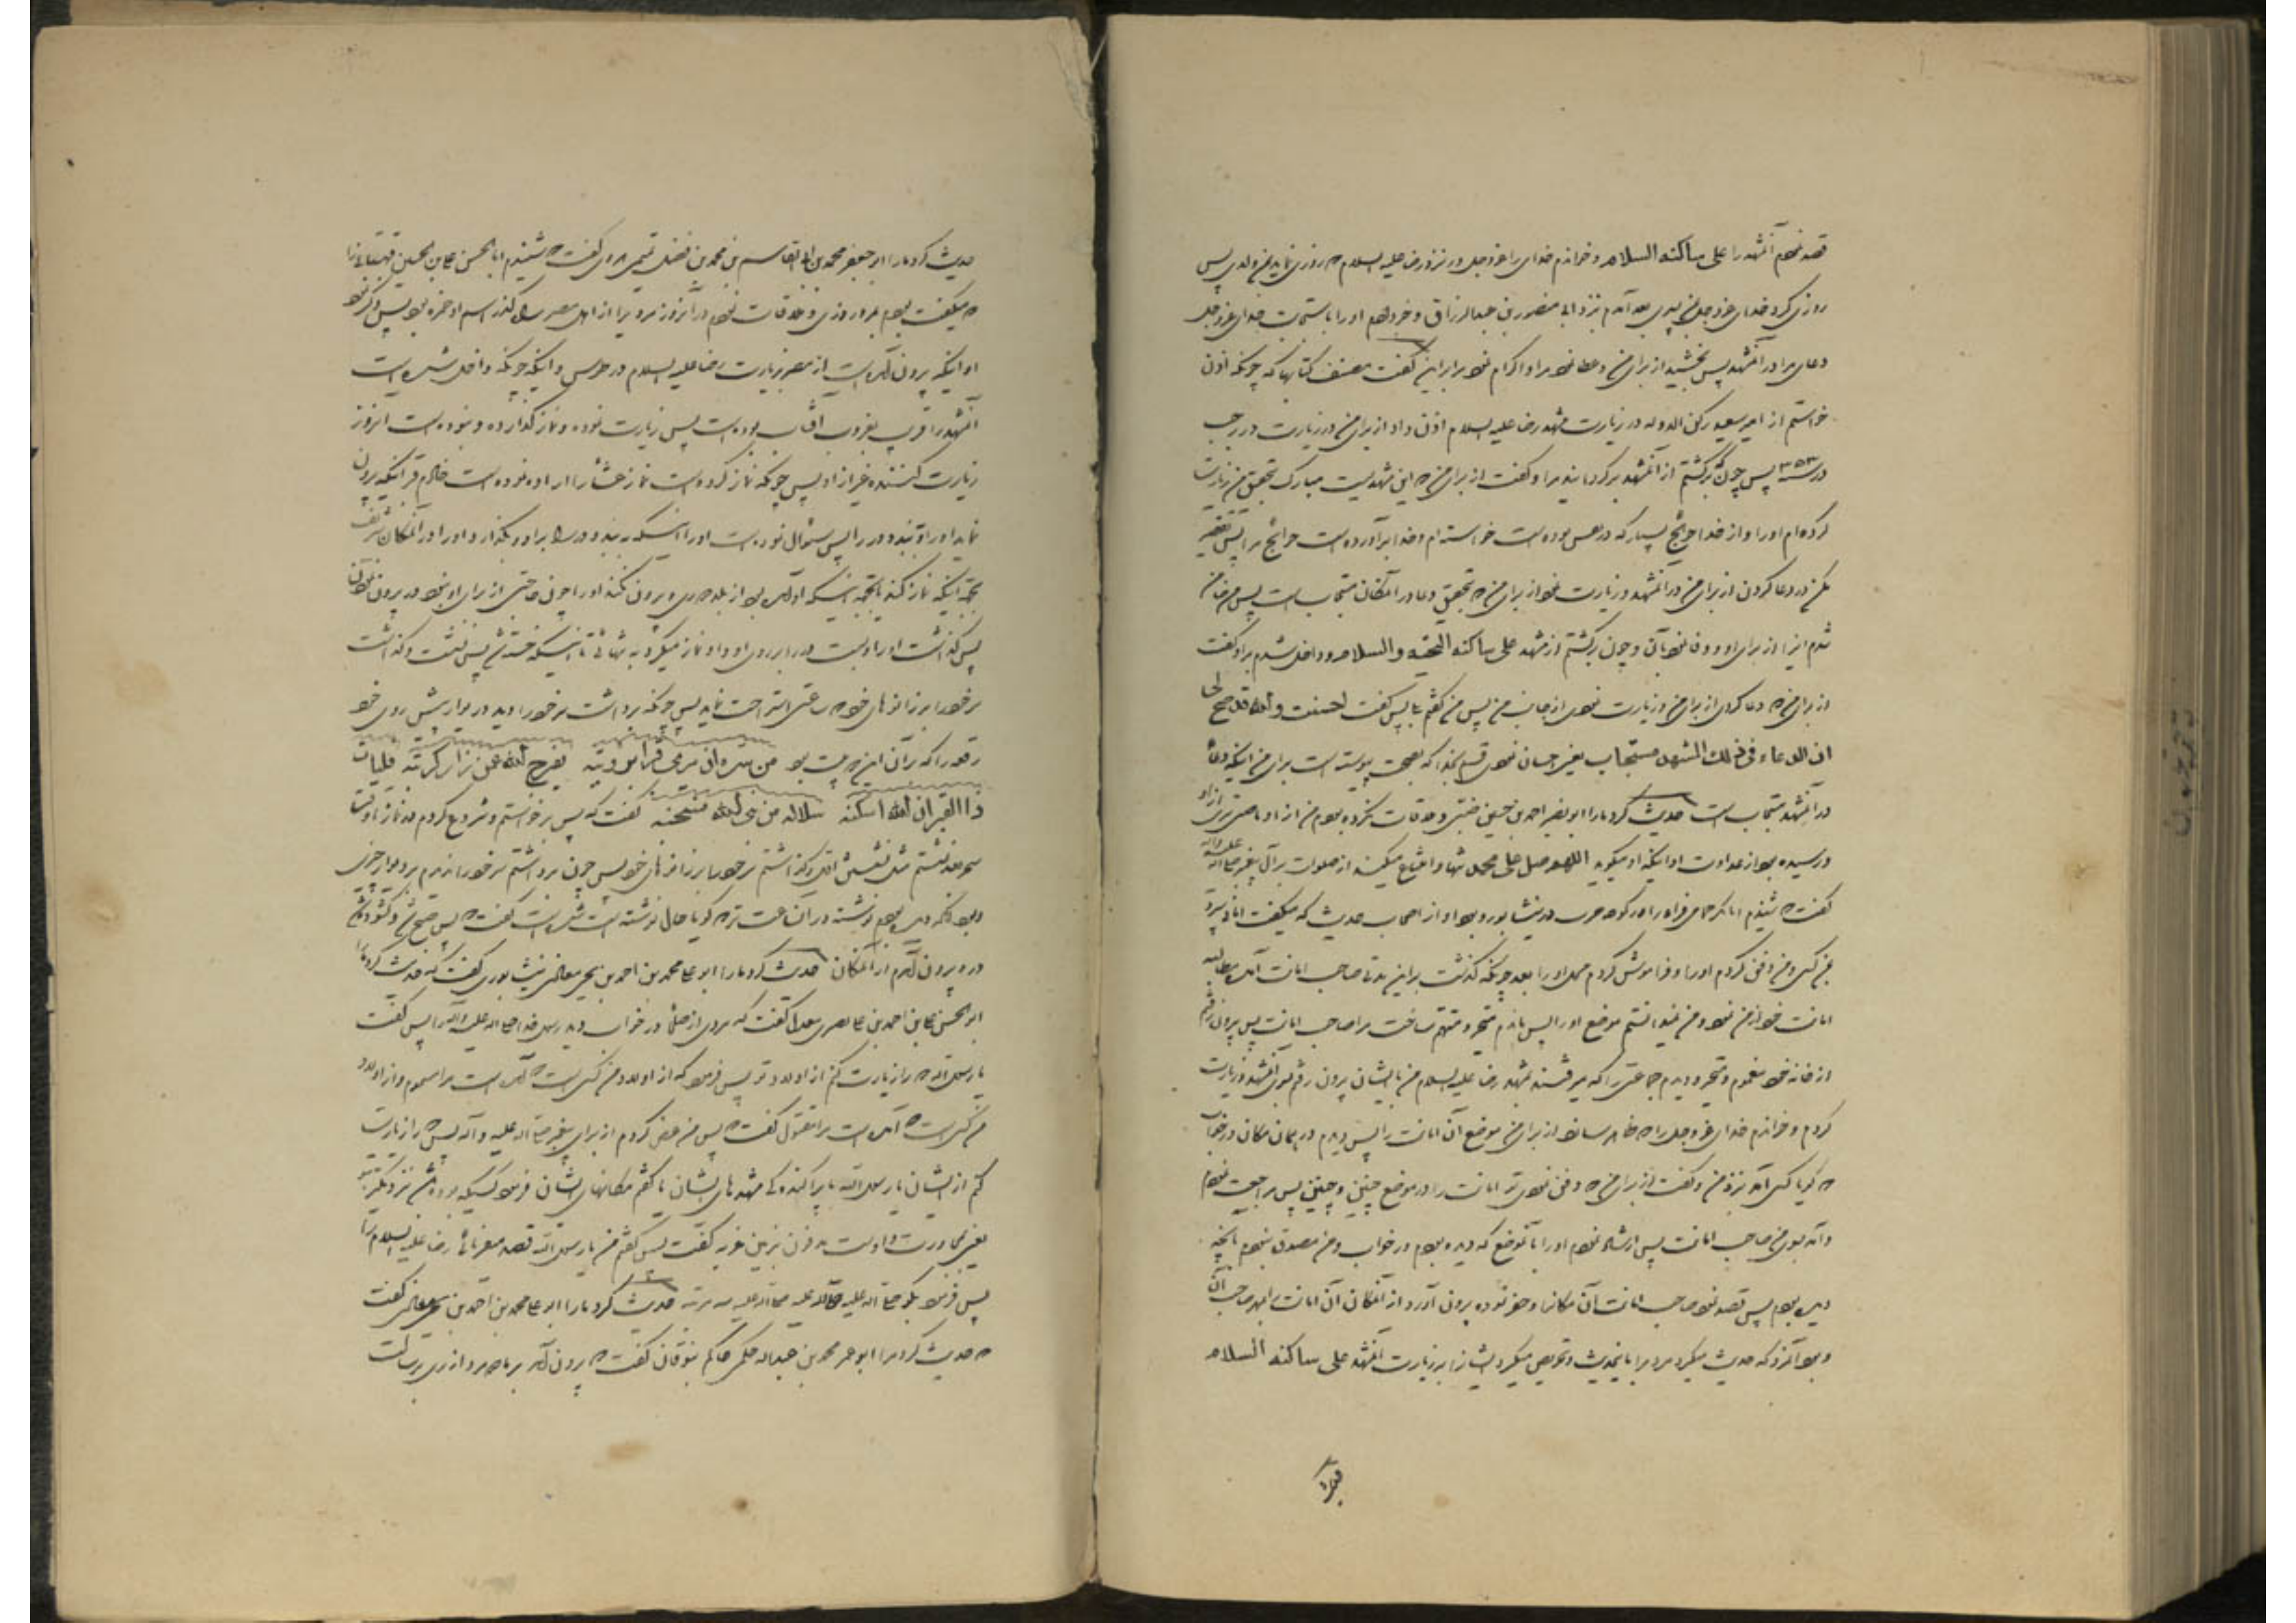 قصد نمودم آنمشهد را على ساكنه السلام و خواندم خدای را عز و جل در نزد رضا علیه السلام که روزی نماید بمن ولدی پس
روزی کرد خدای عز و جل بمن پسری بعد آمدم نزد ابی منصور بن عبدالرزاق و خبر دادم او را باستجابت خدای عز و جل
دعای مرا در آنمشهد پس بخشید از برای من و عطا نمود مرا و اکرام نمود مرا بر این گفت مصنف کتابها که چونکه اذن
خواستم از امیر سعید رکن الدوله در زیارت مشهد رضا علیه السلام اذن داد از برای من در زیارت در رجب
در سنه ۳۵۲ پس چون برگشتم از آنمشهد برگردانید مرا و گفت از برای من که این مشهدیست مبارک بتحقیق من زیارت
کرده‌ام او را و از خدا حوائج بسیار که در نفس بوده است خواسته‌ام و خدا برآورده است حوائج مرا پس تقصیر
مکن در دعا کردن از برای من در آنمشهد و زیارت نمودن از برای من که بتحقیق دعا در آنمکان مستجاب است پس من ضامن
شدم اینرا از برای او و وفا نمودم بآن و چون برگشتم از مشهد على ساكنه التحيه والسلام و داخل شدم بر او گفت
از برای من که دعا کردی از برای من و زیارت نمودی از جانب من پس من گفتم بلی پس گفت احسنت والله قد صح لی
ان الدعاء فی ذلك المشهد مستجاب یعنی احسان نمودی قسم بخدا که بصحت پیوسته است برای من اینکه دعا
در آنمشهد مستجاب است حدیث کرد ما را ابو نصر احمد بن حسین ضبی و ملاقات نکرده بودم من از او ناصبی‌تری از او
و رسیده بود از عداوت او اینکه او میگوید اللهم صل على محمد تنها و امتناع میکند از صلوات بر آل پیغمبر صلی الله علیه وآله
گفت که شنیدم ابابکر حمامی فراء را در کوچه حرب در نیشابور و بود او از اصحاب حدیث که میگفت امانت سپرد
بمن کسی و من دفن کردم او را و فراموش کردم محل او را بعد چونکه گذشت بر این مدتی صاحب امانت آمد و مطالبه
امانت خود از من نمود و من نمیدانستم موضع او را پس ماندم متحیر و متهم ساخت مرا صاحب امانت پس بیرون رفتم
از خانه خود مغموم و متحیر و دیدم جماعتی را که میرفتند بمشهد رضا علیه السلام من با ایشان بیرون رفتم بسوی آنمشهد و زیارت
کردم و خواندم خدای عز و جل را که ظاهر سازد از برای من موضع آن امانت را پس دیدم در همان مکان در خواب
که گویا کسی آمد نزد من و گفت از برای من که دفن نمودی تو امانت را در موضع چنین و چنین پس مراجعت نمودم
و آمد بسوی من صاحب امانت پس ارشاد نمودم او را بآنموضع که دیده بودم در خواب و من مصدق نبودم بآنچه
دیده بودم پس قصد نمود صاحب امانت آن مکانرا و حفر نموده بیرون آورد از آنمکان آن امانت را بمهر صاحب آن
و بود آنمرد که حدیث میکرد مردم را باینحدیث و تحریص میکرد ایشانرا بر زیارت آنمشهد على ساكنه السلام
حدیث کرد ما را ابو جعفر محمد بن ابی القاسم بن محمد بن فضل تمیمی هروی گفت که شنیدم ابا الحسن علی بن الحسین قهستانی را
که میگفت بودم بمرورودی و ملاقات نمودم در آنروز مردی را از اهل مصر سؤال کننده اسم او حمزه بود پس ذکر نمود
او اینکه بیرون آمده است از مصر بزیارت رضا علیه السلام در طوس و اینکه چونکه داخل شده است
آنمشهد را قریب بغروب آفتاب بوده است پس زیارت نموده و نماز گذارده و نبوده است آنروز
زیارت کننده غیر از او پس چونکه نماز کرده است نماز عشا را اراده نموده است خادم قبر اینکه بیرون
نماید او را و ببندد در را پس سؤال نموده است او را اینکه ببندد در را بر او و بگذارد او را در آنمکان شریف
بجهة اینکه نماز کند بجهة اینکه او آمده بود از بلد دوری و بیرون نکند او را چون حاجتی از برای او نبود در بیرون رفتن
پس گذاشت او را و بست در را بر روی او و او نماز میکرد به تنهائی تا اینکه خسته شد پس نشست و گذاشت
سر خود را بر زانوهای خود که ساعتی استراحت نماید پس چونکه برداشت سر خود را دید در دیوار پیش روی خود
رقعه را که بر آن این دو بیت بود من سره ان یری قبرا برؤیته یفرج الله عمن زار کربته فلیات
ذا القبر ان الله اسکنه سلالة من نبی الله منتجبه گفت که پس برخواستم و شروع کردم در نماز تا وقت
سحر بعد نشستم مثل نشستن اول و گذاشتم سر خود را بر زانوهای خود پس چون برداشتم سر خود را ندیدم بر دیوار چیزی
و بود آنکه دیده بودم نوشته در آن ساعت تر که گویا حال نوشته شده است گفت که پس صبح شد و گشوده شد
در و بیرون آمدم از آنمکان حدیث کرد ما را ابو علی محمد بن احمد بن یحیی معاذی نیشابوری گفت که حدیث کرد ما را
ابو الحسن علی بن احمد بن علی بصری معدل گفت که مردی از صلحا در خواب دید رسول خدا صلی الله علیه وآله را پس گفت
یا رسول الله که را زیارت کنم از اولاد تو پس فرمود که از اولاد من کسی است که آمده است مرا مسموم و از اولاد
من کسی است که آمده است مرا مقتول گفت که پس من عرض کردم از برای پیغمبر صلی الله علیه و آله پس که را زیارت
کنم از ایشان یا رسول الله با پراکندگی مشهدهای ایشان یا گفتم مکانهای ایشان فرمود کسیکه بوده باشد نزدیکتر بتو
یعنی بمجاورت و اوست مدفون بزمین غربه گفت پس گفتم من یا رسول الله قصد میفرمائی رضا علیه السلام را
پس فرمود بگو صلی الله علیه صلی الله علیه صلی الله علیه سه مرتبه حدیث کرد ما را ابو علی محمد بن احمد بن یحیی معاذی گفت
که حدیث کرد مرا ابو عمر محمد بن عبدالله حکمی حاکم بنوقان گفت که بیرون آمد بر ما دو مرد از ری برسالت